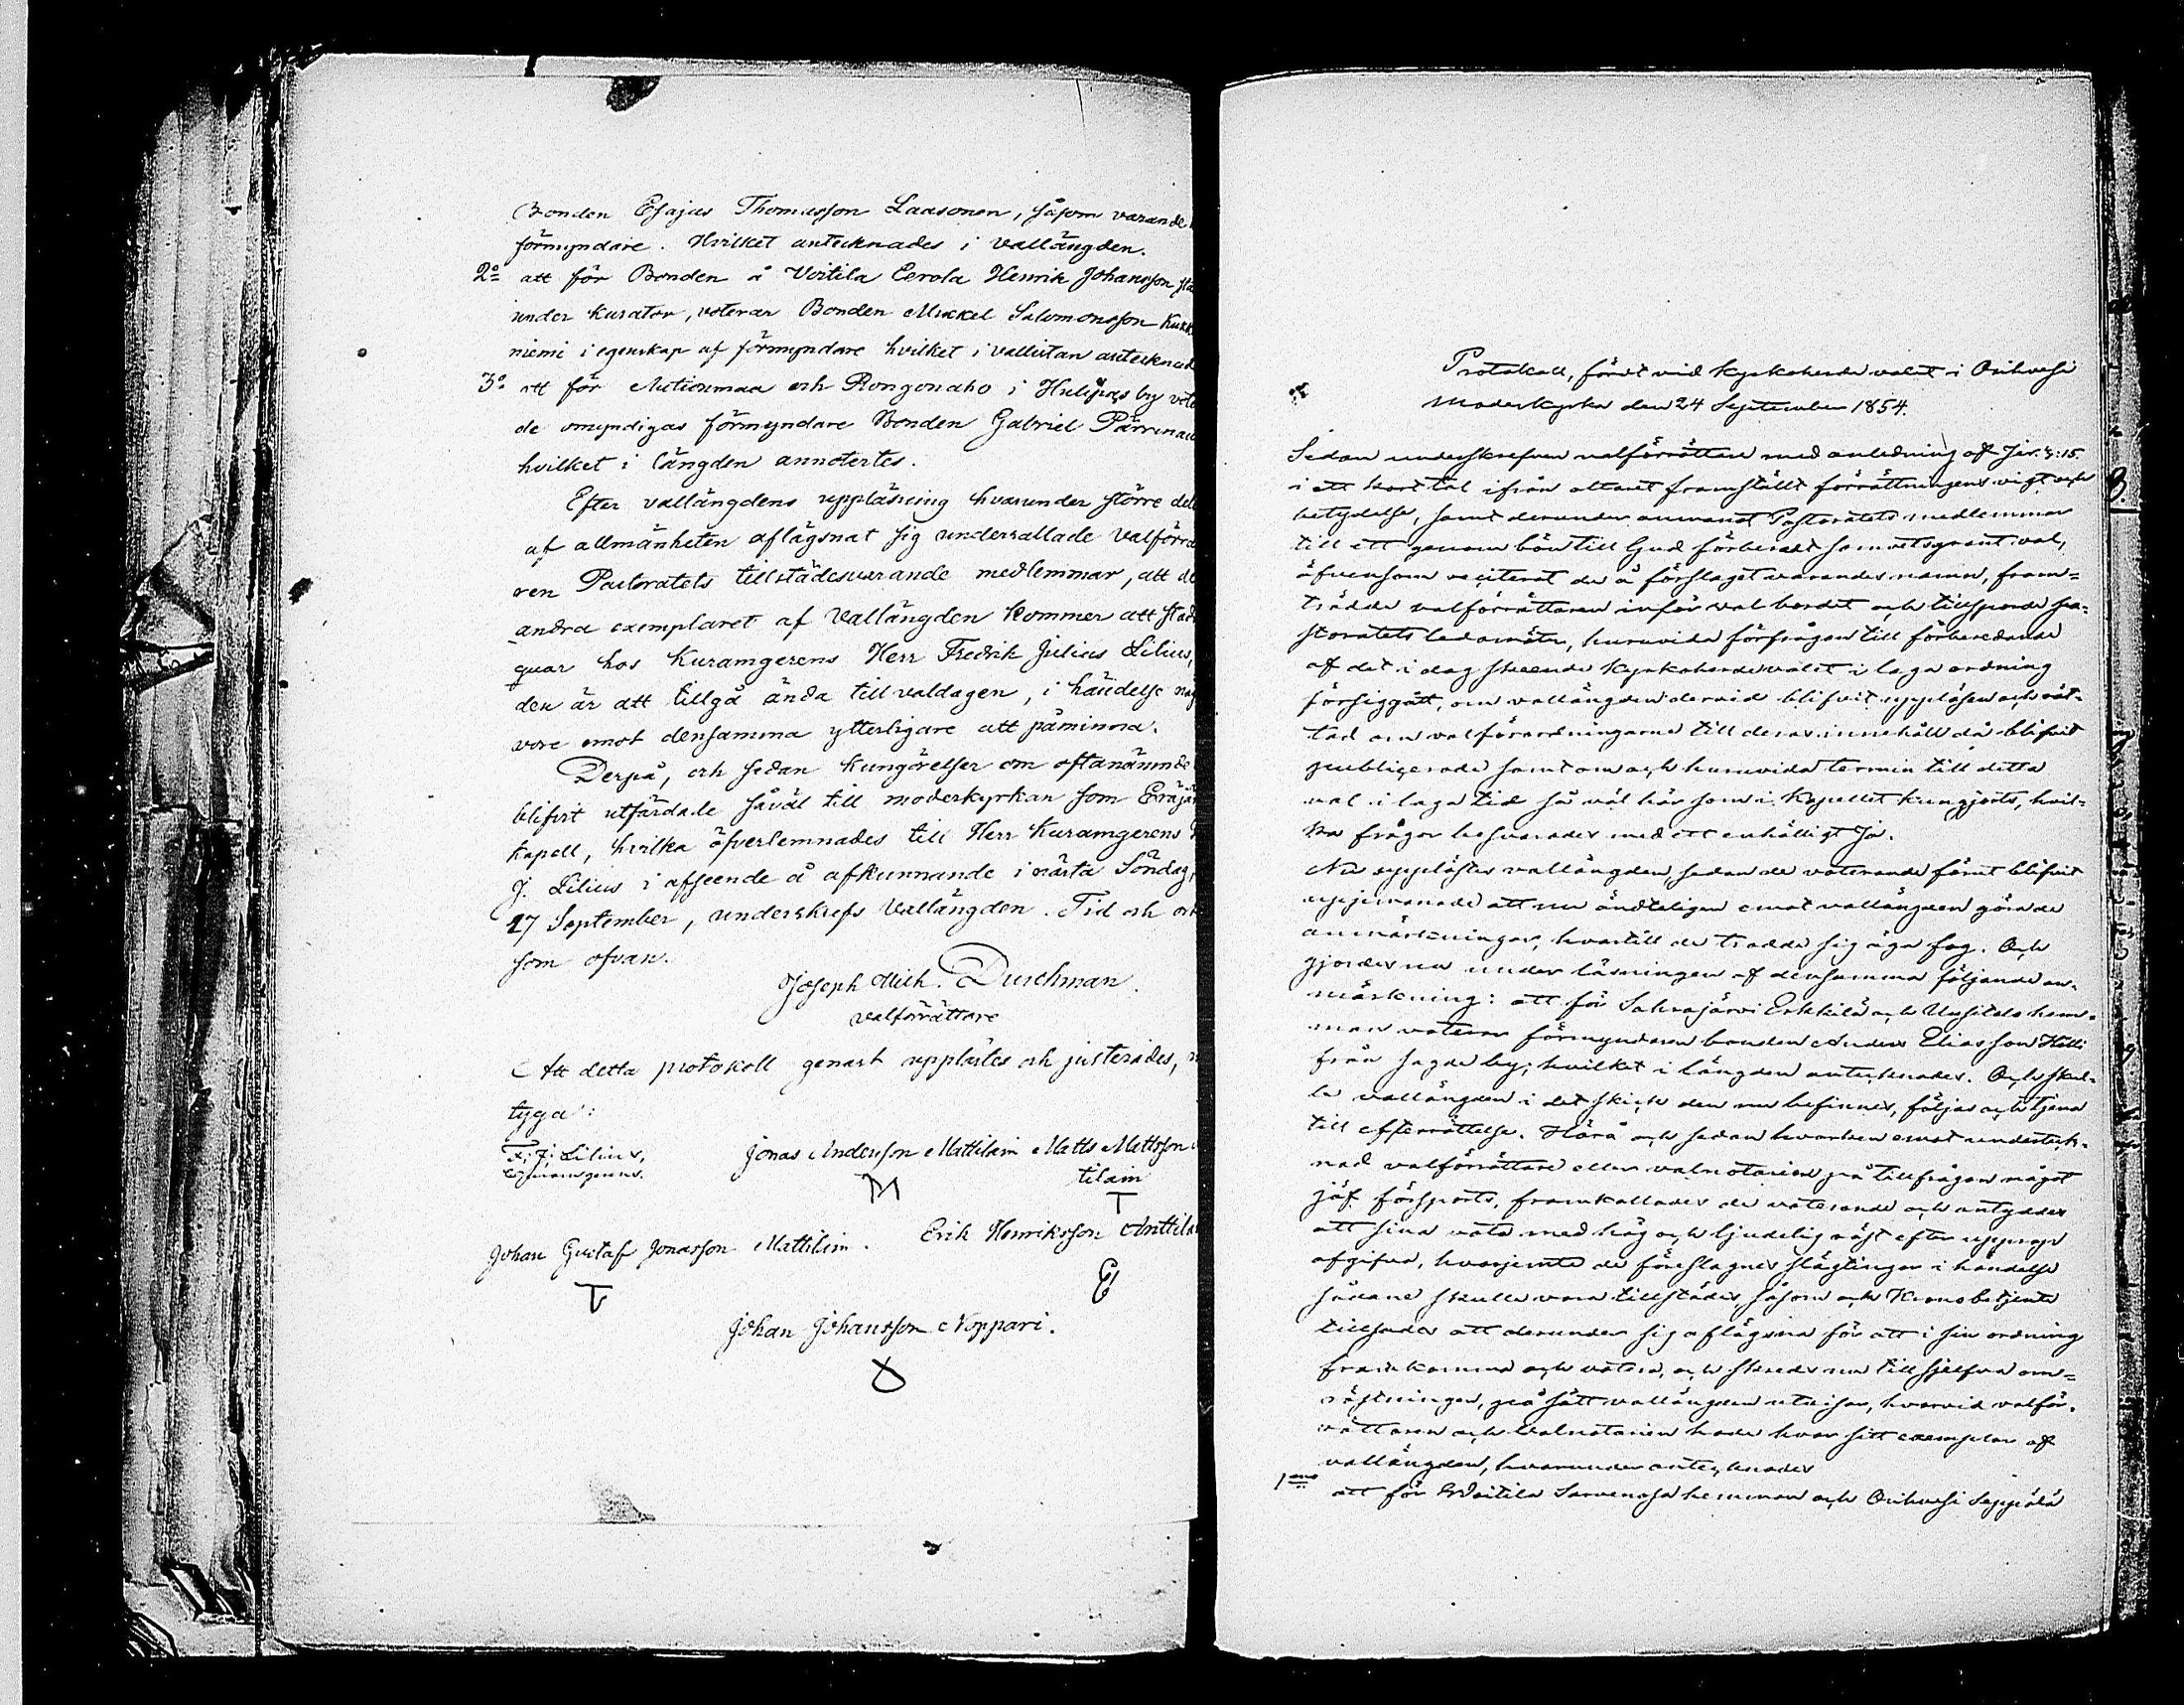 Bonden Esajas Thomasson Laasonen, såsom varande
förmyndare. Hvilket antecknades i vallängden.
2o att för Bonden å Voitila Eerola Henrik Johansson stå
under kurator, voterar Bonden Mickel Salomonsson Kukk
niemi i egenskap af förmyndare hvilket i vallistan antecknad
3o att för Autionmaa och Rongonaho i by vote
de omyndigas förmyndare Bonden Gabriel
hvilket i längden annotertes.
Efter vallängdens uppläsning hvarunder större del
af allmänheten aflägsnat sig underrättade Valförrä
ren Pastoratets tillstädesvarande medlemmar, att de
andra exemplaret af Vallängden kommer att stad
quar hos Kuramgerens Herr Fredrik Julius Lilius,
den är att tillgå ända till valdagen, i händelse nå
vore emot densamma ytterligare att påminna.
Derpå, och sedan kungörelser om oftanämnde
blifvit utfärdade såväl till moderkyrkan som Eräjär
kapell, hvilka öfverlemnades till Herr Kuramgerens
J. Lilius i afseende å afkunnande i nästa Söndag,
17 September, underskrefs Vallängden. Tid och ort
som ofvan.
Joseph Mich. Duschman.
valförrättare
Att detta protokoll genast upplästes och justerades,
tyga:
F. J. Lilius, Jonas Andersson Mattilain Matts Mattsson
tilain
M T
Johan Gustaf Jonasson Mattilain. Erik Henriksson Anttila
Johan Johansson Noppari.
Protokoll, fördt vid Kyrkoherde valet i Orihvesi
Moderkyrka den 24 September 1854.
Sedan underskrefven valförrättare med anledning af Jer. 3:15.
i ett kort tal ifrån altaret framställt förrättningens vigt och
betydelse, samt derunder anmanat Pastoratets medlemmar
till ett genom bön till Gud förberedt samvetsgrant val,
äfvensom reciterat de å förslaget varandes namn, fram=
trädde valförrättaren inför valbordet och tillsporde Pa-
storatets ledamöter, huruvida förfrågan till förberedande
af det i dag skeende Kyrkoherdevalet i laga ordning
försiggått, om vallängden dervid blifvit uppläsen och rät-
tad om valförordningarne till deras innehåll då blifvit
publicerade samt om och huruvida termin till detta
val i laga tid så väl här som i Kapellet kungjorts, hvil-
ka frågor besvarades med ett enhälligt Ja.
Nu upplästes vallängden, sedan de voterande förut blifvit
uppmanade att nu ändteligen emot vallängden göra de
anmärkningar, hvartill de trodde sig äga fog. Och
gjordes nu under läsningen af densamma följande an-
märkning: att för Sahrajärvi Erkkilä och Uusitalo hem-
man voterar förmyndaren bonden Anders Eliasson Helli
från sagde by; hvilket i längden antecknades. Och skul-
le vallängden i det skick den nu befinnes, följas och tjena
till efterrättelse. Härå och sedan hvarken emot underteck-
nad valförrättare eller valnotarien på tillfrågan något
jäf försports, framkallades de voterande och antyddes
att sina vota med hög och ljudelig röst efter upprop
afgifva, hvarjemte de föreslagnes slägtingar i händelse
sådane skulle vara tillstädes, såsom och Kronobetjente
tillsades att derunder sig aflägsna för att i sin ordning
framkomma och votera, och skreds nu till sjelfva om=
röstningen, på sätt vallängden utvisar, hvarvid valför-
rättaren och Valnotarien hade hvar sitt exemplar af
vallängden, hvarunder antecknades
1mo att för Woitila Sarvenoja hemman och Orihvesi Seppälä